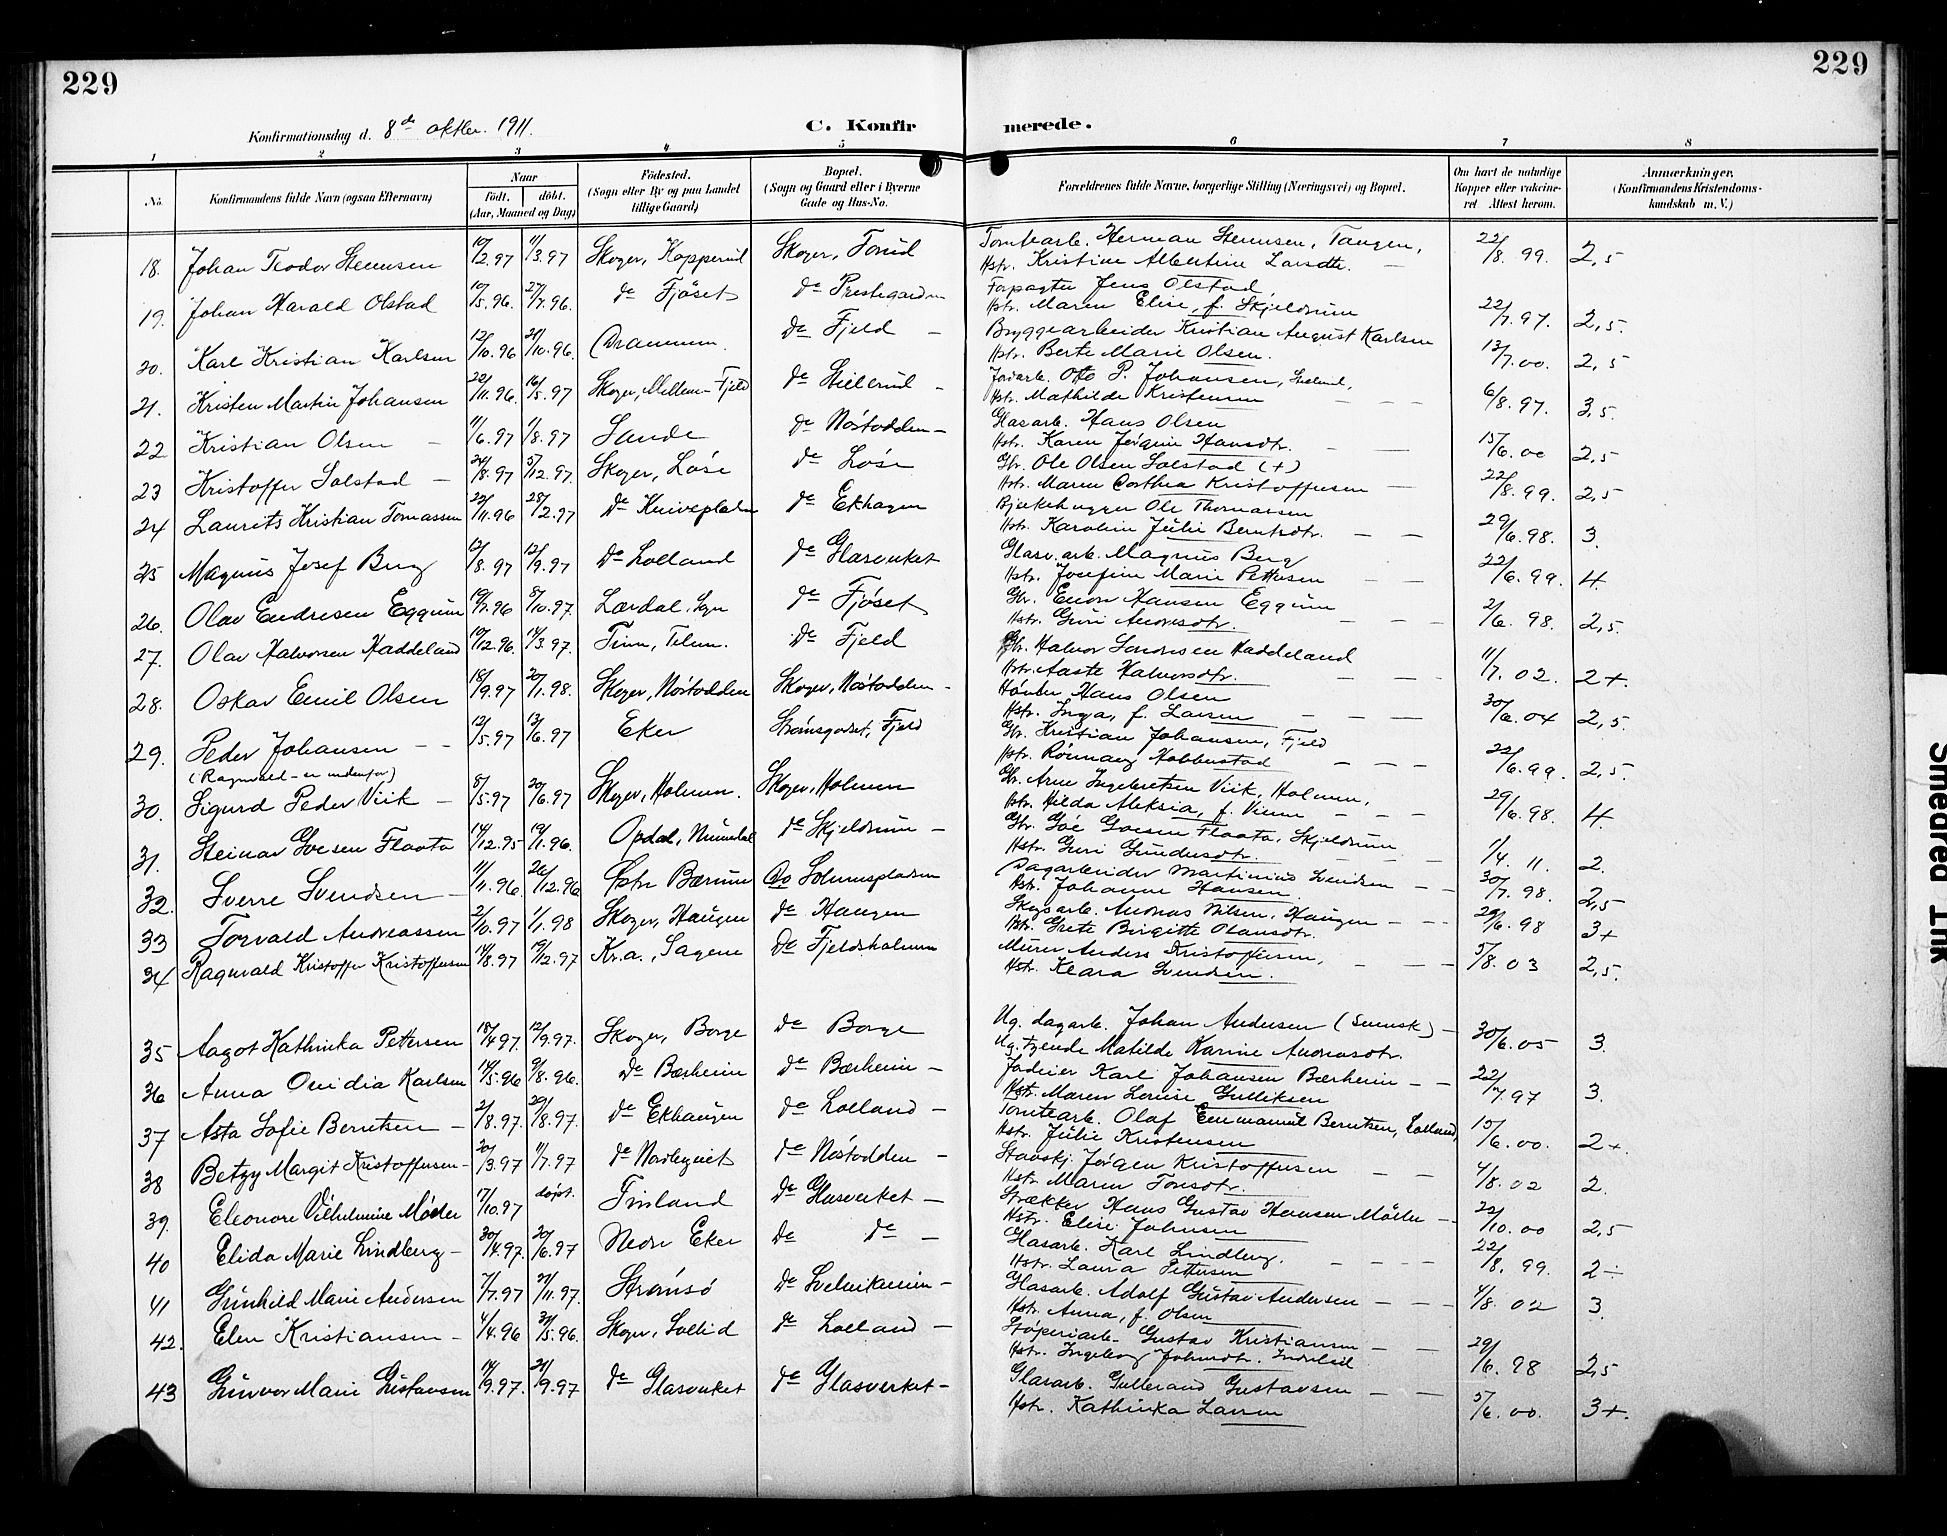 229
229
Konfirmationsdag d. 8de oktbr. 1911.
C. Konfir
merede.
1 2 3 4 5 6 7 8
No. Konfirmandens fulde Navn (ogsaa Efternavn) Naar født. døbt. (Aar, Maaned og Dag) Fødested. (Sogn eller By og paa Landet tillige Gaard) Bopæl. (Sogn og Gaard eller i Byerne Gade og Hus-No. Forældrenes fulde Navne, borgerlige Stilling (Næringsvei) og Bopæl. Om havt de naturlige Kopper eller vaccineret. Attest herom. Anmærkninger. (Konfirmandens Kristendomskundskab m. V.)
18. Johan Teodor Stemsen 10/2.97 11/3.97 Skoger, Kopperud Skoger, Torud Tomtearb. Herman Stemsen, Tangen, 22/8.99. 2,5
Hstr. Kristine Albertine Larsdtr.
19. Johan Harald Olstad 10/5.96. 27/7.96. do Fjøset do Prestegaarden Forpagter Jens Olstad 22/7.97. 2,5.
Hstr. Maren Elise, f. Skjeldrum
20. Karl Kristian Karlsen 12/10.96 Drammen. do Fjeld - Bryggearbeider Kristian August Karlsen 13/7.00. 2,5
Hstr. Berte Marie Olsen.
21. Kristen Martin Johansen 22/11.96. 16/5.97 Skoger, Mellem-Fjeld do Stillerud - Jordarb. Otto P. Johansen, 6/8.97. 3,5.
Hstr. Mathilde Kristensen
22 Kristian Olsen - 11/6.97 1/8.97 Sande do Nøstodden - Glasarb. Hans Olsen 15/6.00 2,5
Hstr. Karen Jørgine Hansdtr.
23 Kristoffer Solstad - 24/8.97 5/12.97 Skoger, Løse do Løse Gbr. Ole Olsen Solstad (+) 22/8.99. 2,5
Hstr. Maren Dorthea Kristoffersen
24 Laurits Kristian Tomassen 22/11.96 28/2.97 do Kniveplassen do Ekhagen Bjelkehugger Ole Thomassen 29/6.98. 3.
Hstr. Karoline Julie Berntsdtr.
25 Magnus Josef Berg 12/8.97 12/9.97 Do Lolland do Glasverket Glasv.arb. Magnus Berg 22/6.99. 4.
Hstr. Josefine Marie Pettersen
26. Olav Endresen Eggum 5/10.97. Lærdal, Sogn do Fjøset Gbr. Endre Hansen Eggum 2/6.98. 2,5.
Hstr. Guri Andresdtr.
27. Olav Halvorsen Haddeland 10/12.96. 14/3.97. Tinn, Telem. Do Fjeld Gbr. Halvor Sondresen Haddeland 11/7.02. 2+.
Hstr. Aaste Halvorsdtr.
28. Oskar Emil Olsen 18/9.97 30/1.98. Skoger, Nøstodden Skoger, Nøstodden - Hans Olsen 30/6.04 2,5.
Hstr. Inga, f. Larsen
29. Peder Johansen - - 12/5.97 13/6.97 Eker Strømsgodset, Fjeld Gbr. Kristian Johansen, Fjeld 22/6.99. 2,5.
(Ragnvald - er nedenfor) Hstr. Rønnaug Hobbelstad
30. Sigurd Peder Viik - 8/5.97 20/6.97 Skoger, Holmen. Skoger, Holmen Gbr. Arne Ingebretsen Viik, Holmen, 29/6.98. 4.
Hstr. Hilda Aleksia, f. Viem
31. Steinar Goesen Flaata 14/12.95 19/1.96. Opdal, Numedal do Skjeldrum - Gbr. Goe Goesen Flaata, Skjeldrum 1/4.11. 2.
Hstr. Guri Gundersdtr.
32. Sverre Svendsen - 11/11.96. 26/12.96 Østre Bærum Do Solumspladsen Dagarbeider Martinius Svendsen 30/7.98. 2,5
Hstr. Johanne Hansen
33 Torvald Andreassen 2/10.97 1/1.98 Skoger, Haugen do Haugen Skogsarb. Andreas Nilsen, Haugen 29/6.98 3+
Hstr. Grete Birgitte Olansdtr.
34 Ragnvald Kristoffer Kristoffersen 14/8.97 19/12.97 Kr.a., Sagene Do Fjeldsholmen Murer Anders Kristoffersen, 5/8.03 2,5.
Hstr. Klara Svendsen.
35 Aagot Kathinka Pettersen 18/4.97. 12/9.97. Skoger, Borge do Borge Ug. dagarb. Johan Andersen (Svensk) - 30/6.05 3.
Ug. tjende Matilde Karine Andreasdtr.
36 Anna Ovidia Karlsen 14/5.96 9/8.96. Do Bærheim do Bærheim - Jødeier Karl Johansen Bærheim 22/7.97 3.
Hstr. Maren Lovise Gulliksen
37 Asta Sofie Berntsen - 2/8.97. 29/8.97. do Ekhaugen do Lolland - Tomtearb. Olaf Emmanuel Berntsen, Lolland, 10/6.00. 2+.
Hstr. Julie Kristensen
38 Betzy Margit Kristoffersen - 20/3.97 11/7.97 do Nordbyeiet do Nøstodden - Stavskj. Jørgen Kristoffersen 4/8.02 2.
Hstr. Maren Toresdtr.
39. Eleonore Vilhelmine Møller 17/10.97 døpt. Finland Do Glasverket - Strækker Hans Gustav Hansen Møller 22/10.00 2,5
Hstr. Elise Johnsen
40 Elida Marie Lindberg - 30/4.97. 20/6.97 Nedre Eker Do do - Glasarb. Karl Lindberg. 22/8.99. 2÷
Hstr. Laura Pettersen
41 Gunhild Marie Andersen 7/7.97 21/11.97. Strømsø Do Svelvikveien - Glasarb. Adolf Gustav Andersen 4/8.02 3.
Hstr. Anna, f. Olsen
42. Elen Kristiansen - 4/4.96 31/5.96. Skoger, Sollid do Lolland - Støperiarb. Gustav Kristiansen 29/6.98 2,5
Hstr. Ingeborg Johnsdtr.
43 Gunvor Marie Gustavsen 14/9.97. 21/9.97 do Glasverket do Glasverket - Glasarb. Gullerand Gustavsen 5/6.00. 3+.
Hstr. Kathinka Larsen
Smeared Ink